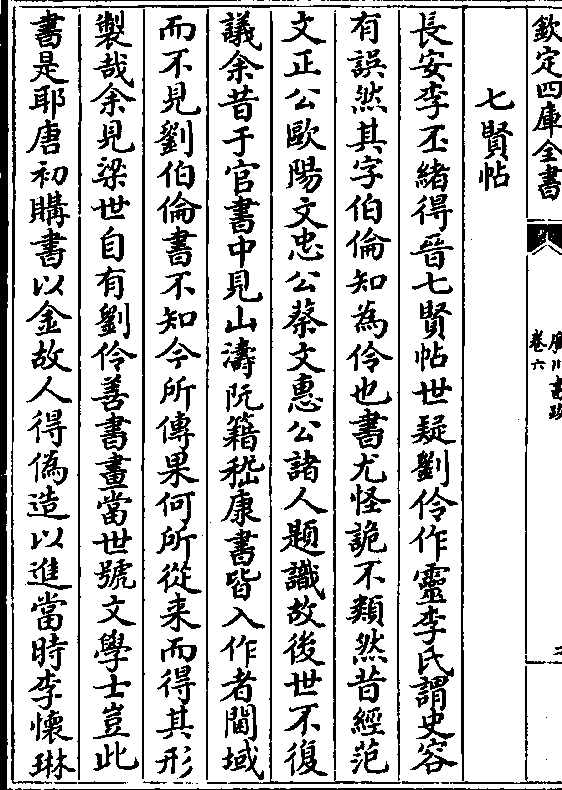 欽定四庫全書
廣川書跋
卷六
七賢帖
長安李丕緒得晉七賢帖世疑劉伶作靈李氏謂史容
有誤然其字伯倫知為伶也書尤怪詭不類然昔經范
文正公歐陽文忠公蔡文惠公諸人題識故後世不復
議余昔于官書中見山濤阮籍嵇康書皆入作者閫域
而不見劉伯倫書不知今所傳果何所從来而得其形
製哉余見梁世自有劉伶善書畫當世號文學士豈此
書是耶唐初購書以金故人得偽造以進當時李懷琳